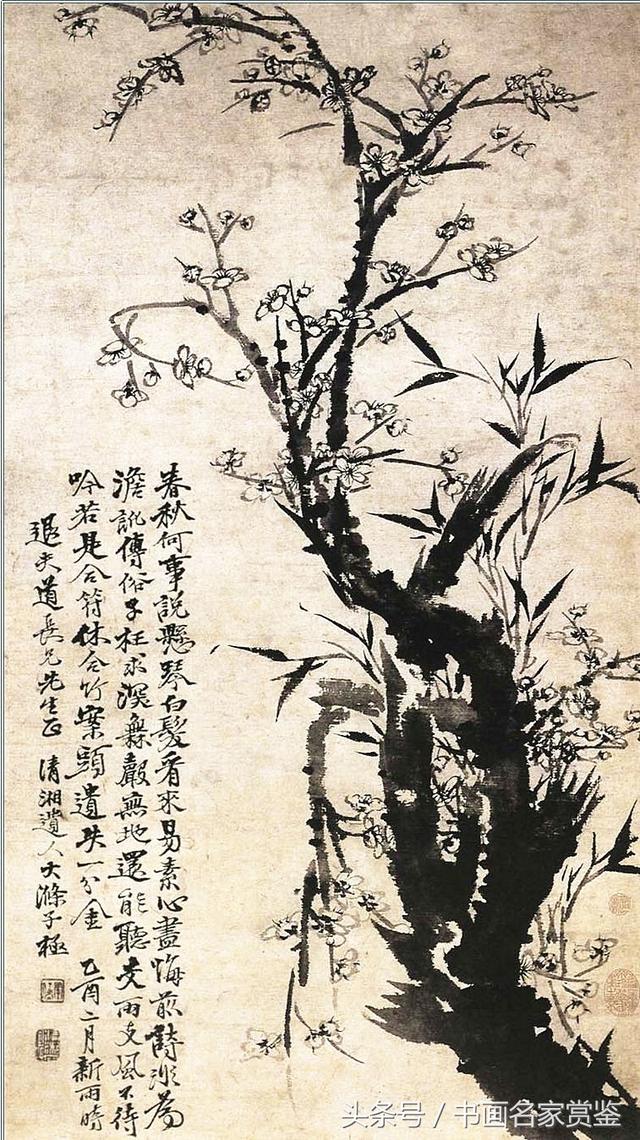 春秋何事說懸琴白髮看來易素心盡悔前詩非為
澹訛傳俗子枉求深無聲無地還能聽支雨支風不待
吟若是合符休合竹案頭遺失一分金 乙酉二月新雨時
退夫道長兄先生正 清湘遺人大滌子極
头条号 / 书画名家赏鉴